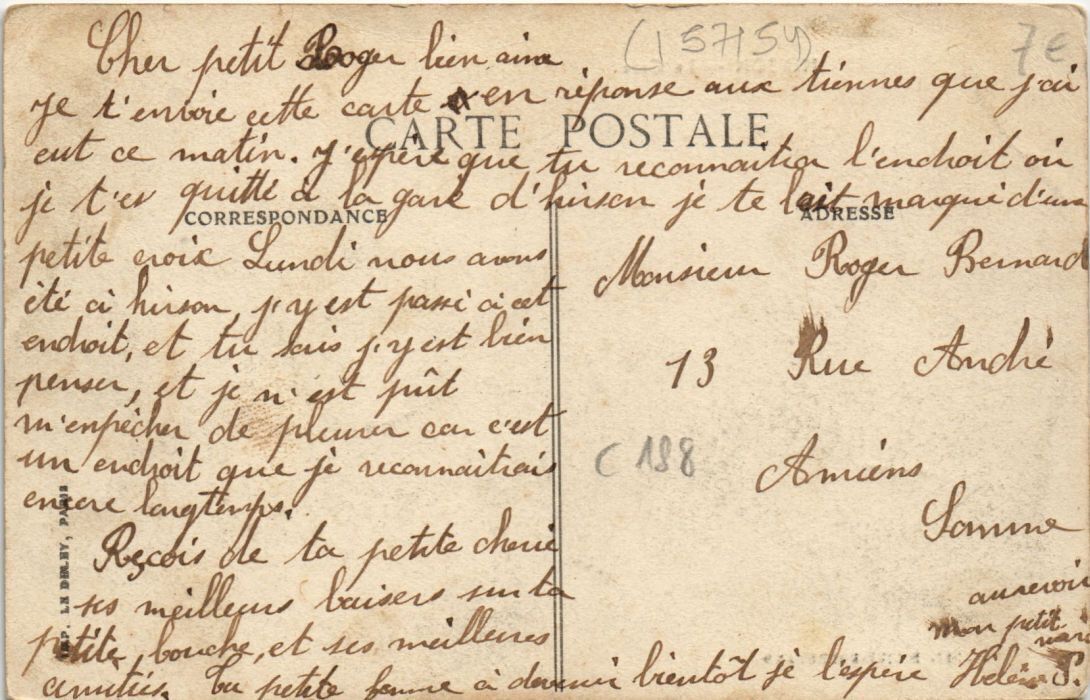 (157154)
7e
Cher petit Roger bien aimé
Je t'envoie cette carte en réponse aux tiennes que j'ai
CARTE POSTALE
eut ce matin. J'espére que tu reconnaitra l'endroit où
je t'es quitté à la gare d'hirson je te l'ait marqué d'une
CORRESPONDANCE
petite croix Lundi nous avons
été à hirson, j'y est passé à cet
endroit, et tu sais j'y est bien
penser, et je n'est pût
m'empêcher de pleurer car c'est
un endroit que je reconnaitrais
encore longtemps.
Reçois de ta petite cherie
ses meilleurs baisers sur ta
petite bouche, et ses meilleures
amitiés. Ta petite femme à devenir bientôt je l'espére Hélène P.
ADRESSE
Monsieur Roger Bernard
13 Rue André
C 198
Amiens
Somme
aurevoir
mon petit
mari
IMP. LE DELEY, PARIS